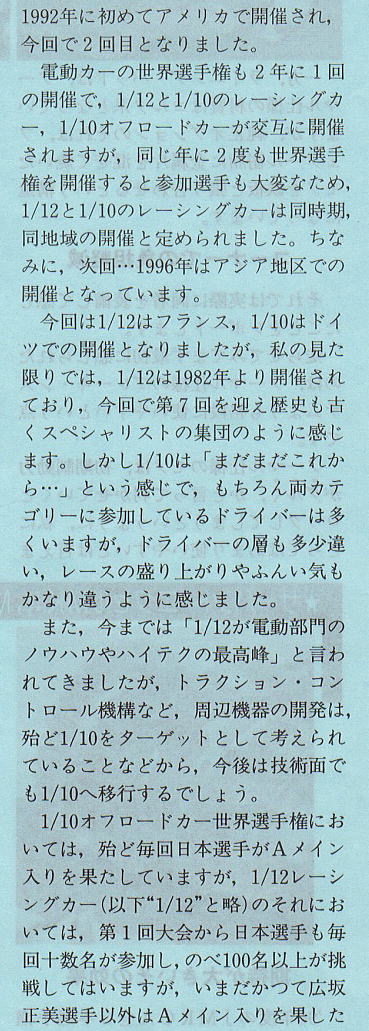 1992年に初めてアメリカで開催され，
今回で２回目となりました。
　電動カーの世界選手権も２年に１回
の開催で，1/12と1/10のレーシングカ
ー，1/10オフロードカーが交互に開催
されますが，同じ年に２度も世界選手
権を開催すると参加選手も大変なため，
1/12と1/10のレーシングカーは同時期，
同地域の開催と定められました。ちな
みに，次回…1996年はアジア地区での
開催となっています。
　今回は1/12はフランス，1/10はドイ
ツでの開催となりましたが，私の見た
限りでは，1/12は1982年より開催され
ており，今回で第７回を迎え歴史も古
くスペシャリストの集団のように感じ
ます。しかし1/10は「まだまだこれか
ら…」という感じで，もちろん両カテ
ゴリーに参加しているドライバーは多
くいますが，ドライバーの層も多少違
い，レースの盛り上がりやふんい気も
かなり違うように感じました。
　また，今までは「1/12が電動部門の
ノウハウやハイテクの最高峰」と言わ
れてきましたが，トラクション・コン
トロール機構など，周辺機器の開発は，
殆ど1/10をターゲットとして考えられ
ていることなどから，今後は技術面で
も1/10へ移行するでしょう。
　1/10オフロードカー世界選手権にお
いては，殆ど毎回日本選手がＡメイン
入りを果たしていますが，1/12レーシ
ングカー(以下“1/12”と略)のそれにお
いては，第１回大会から日本選手も毎
回十数名が参加し，のべ100名以上が挑
戦してはいますが，いまだかつて広坂
正美選手以外はＡメイン入りを果した